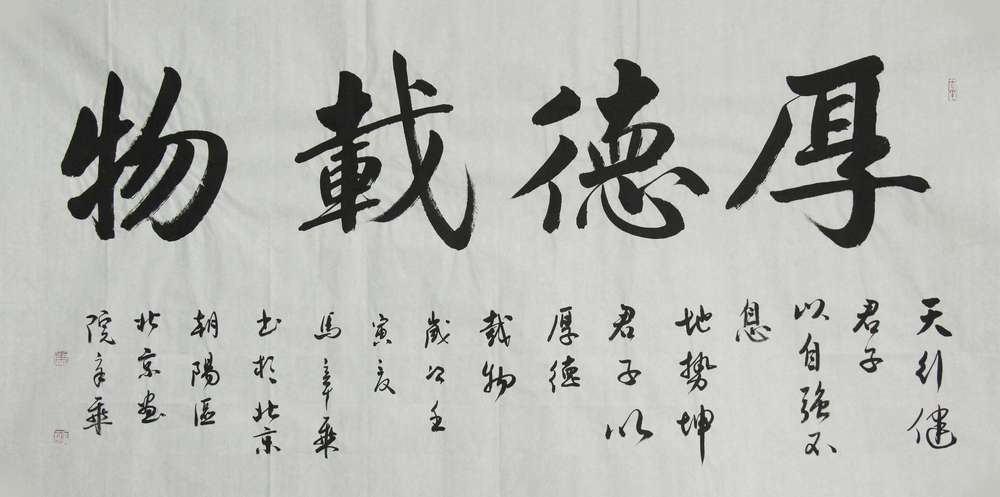 厚德載物
天行健
君子
以自強不
息
地勢坤
君子以
厚德
載物
歲次壬
寅夏
馬
書於北京
朝陽區
北京畫
院